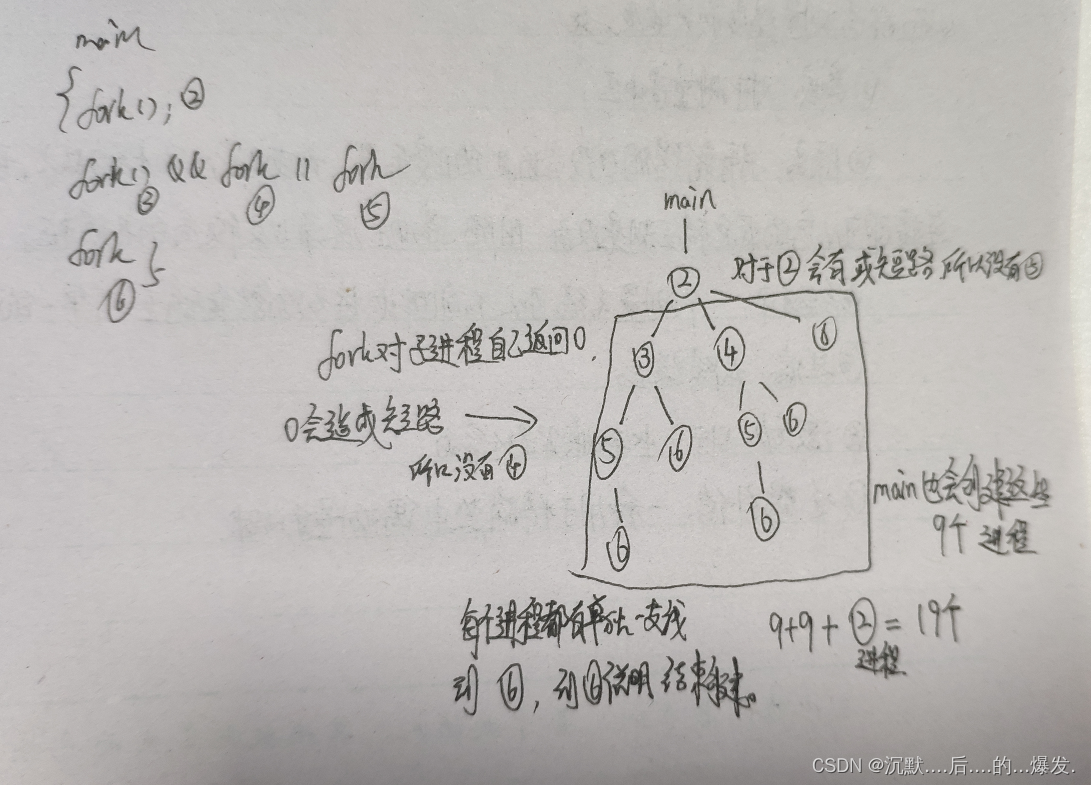 main
{fork(); ②
fork() && fork || fork
③ ④ ⑤
fork }
⑥
main
② 对于②会有或短路所以没有⑤
fork对子进程自己返回0,
③ ④ ⑥
0会造成短路
所以没有④
⑤ ⑥ ⑤ ⑥
⑥ ⑥
main也会创建这些
9个进程
每个进程都有单独一支线
到⑥,到⑥说明结束。
9+9+②=19个
进程
CSDN @沉默....后....的...爆发.